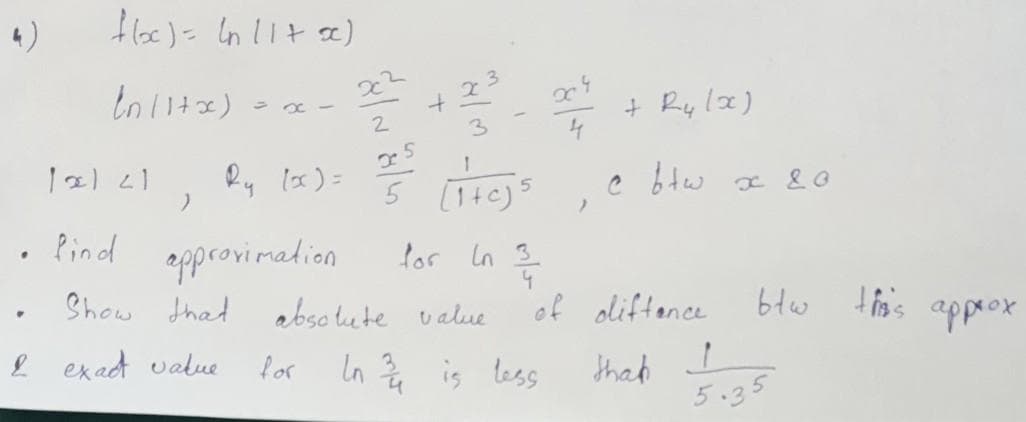 4) f(x) = ln(1+x)
ln(1+x) = x - x²/2 + x³/3 - x⁴/4 + R₄(x)
|x| < 1 , R₄(x) = x⁵/5 1/(1+c)⁵ , c btw x & 0
• find approximation for ln 3/4
• Show that absolute value of diffence btw this approx
& exact value for ln 3/4 is less than 1/(5·3⁵)